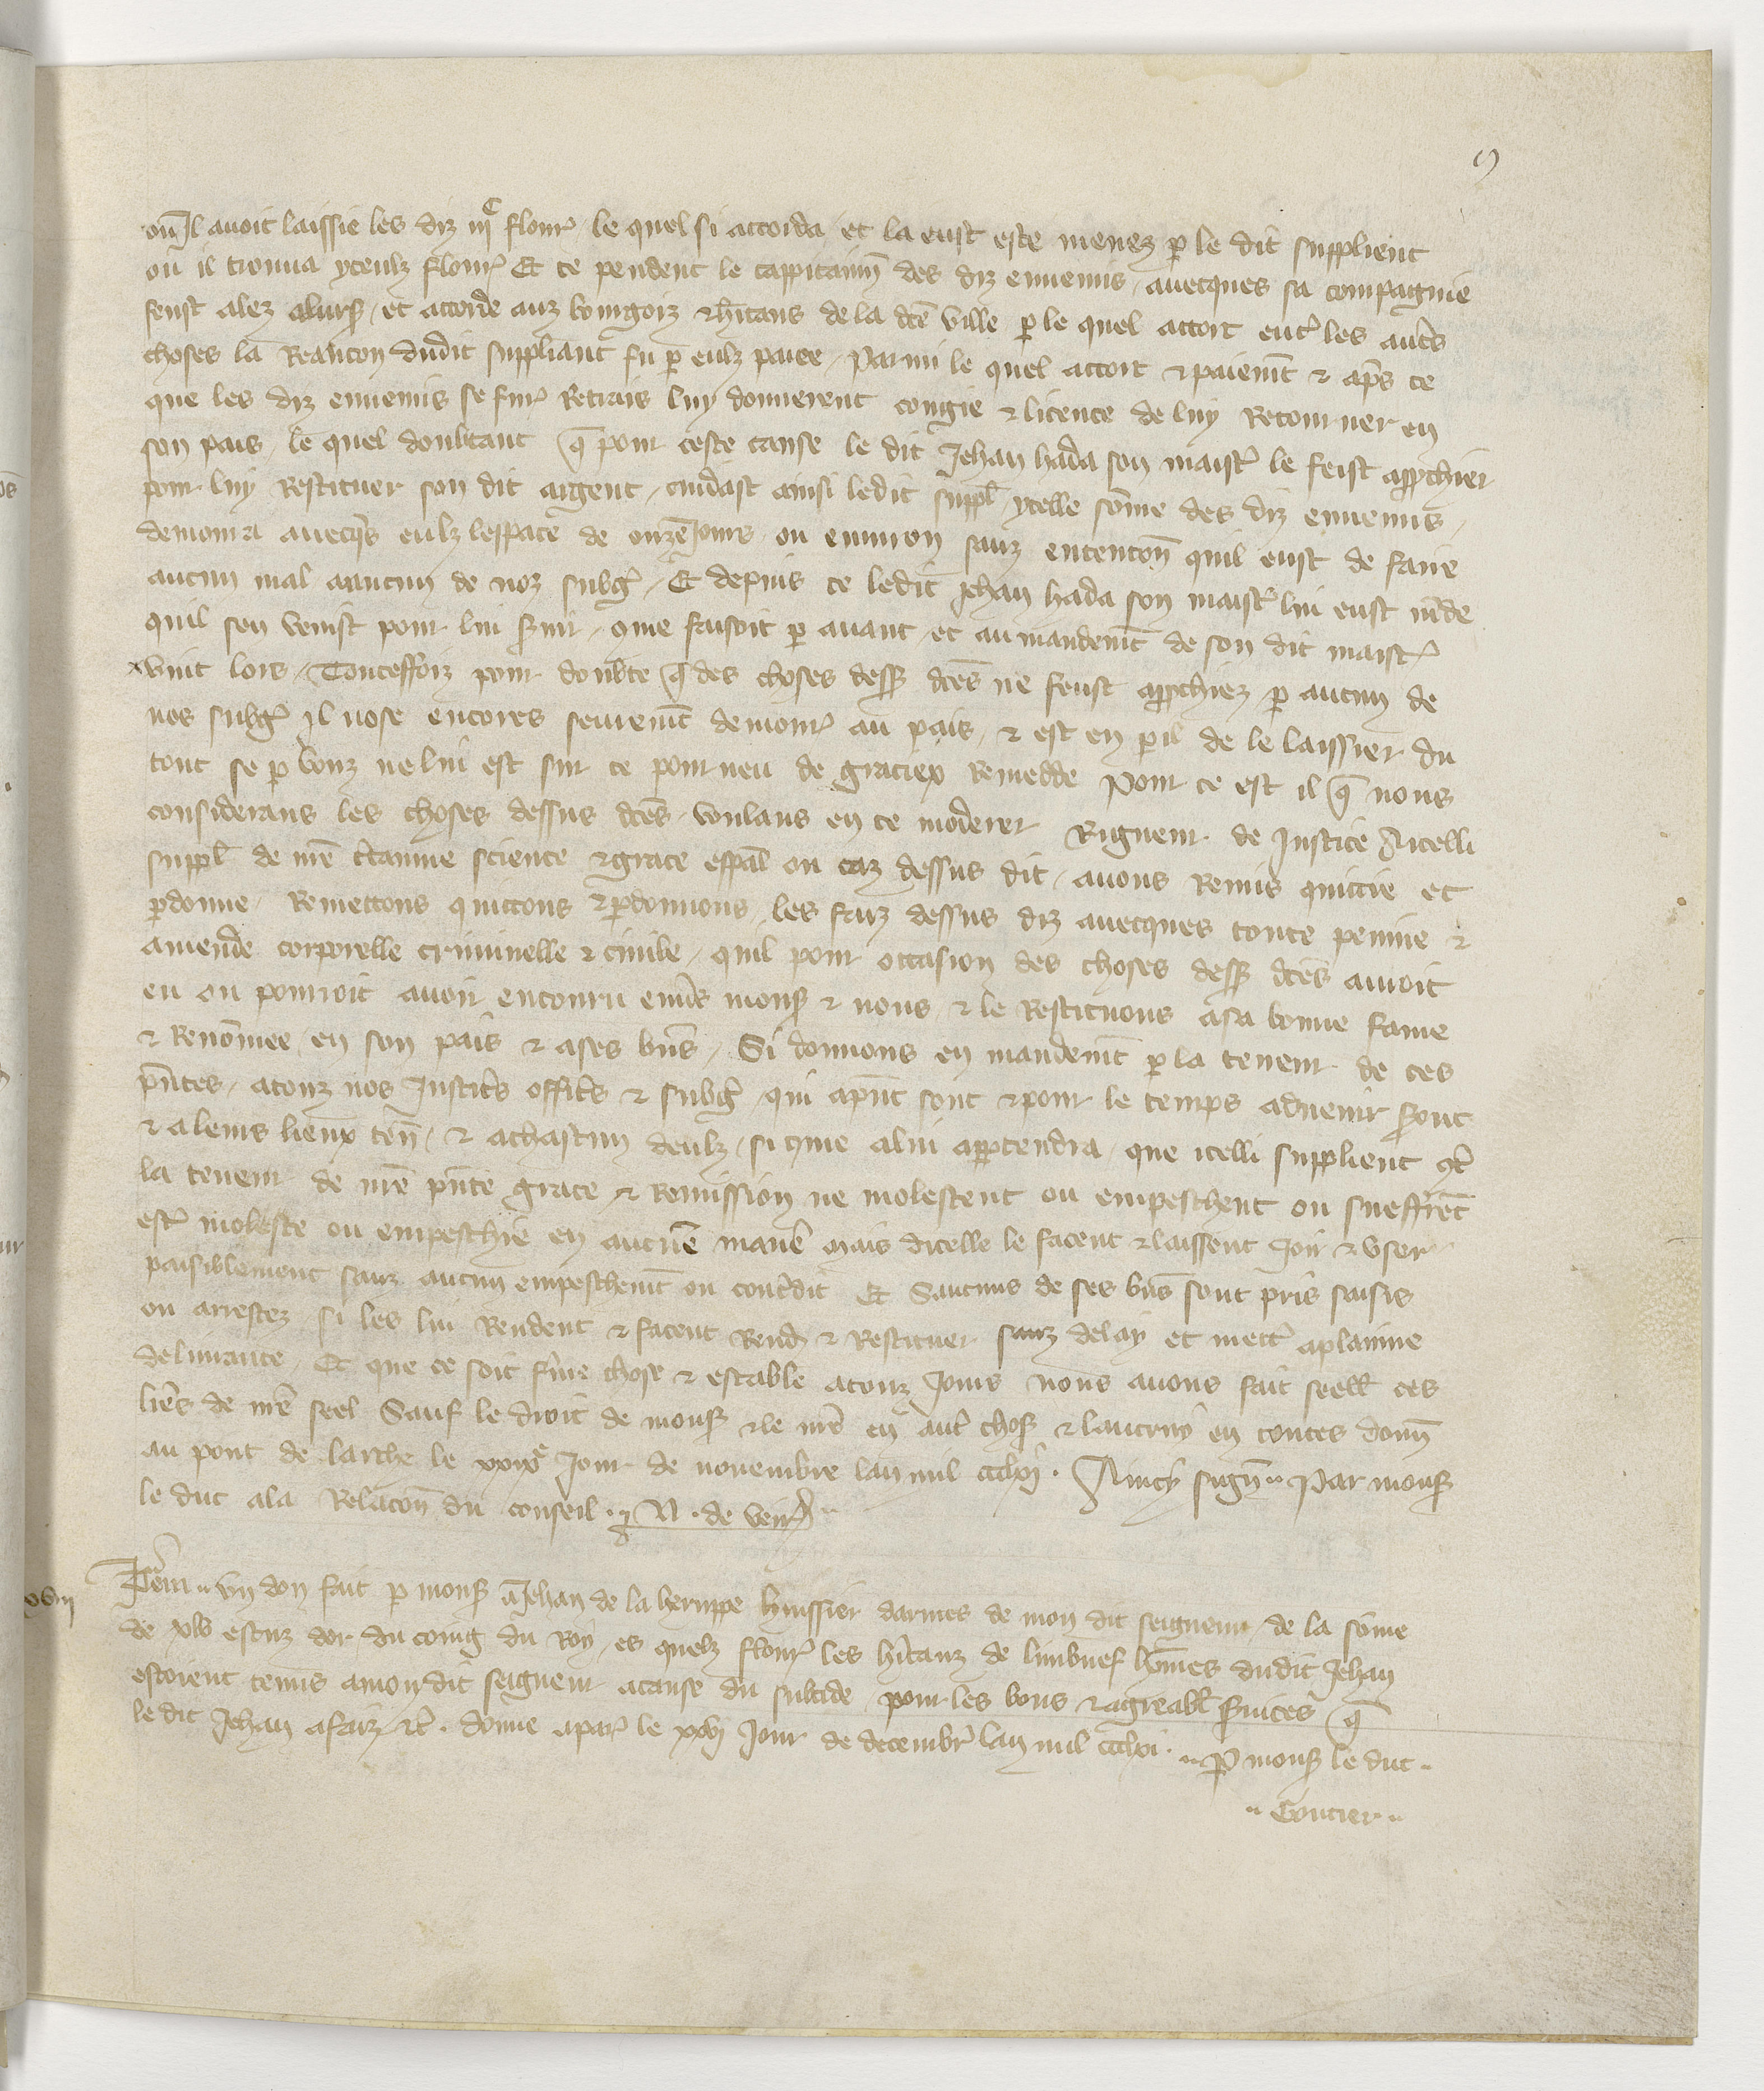 9
ou il avoit laissie les diz iiiᶜ flor̃ / le quel si accorda et la eust este menez p̱ le dit supplient
ou il trouva yceulz flor̃ Et ce pendent le cappitainñ des diz ennemis / avecques sa compagnie
feust alez et accorde auz bourgoiz ⁊ h̃itans de la dc̃e ville p̱ le quel accort ent̾ les aut̾s
choses la Reancon dudit suppliant fu p̱ eulz paiee / Parmi le quel accort ⁊ paiem̃t ⁊ ap̾s ce
que les diz ennemis se fur̃ Retrais luy donnerent congie ⁊ licence de luy Retourner en
son pais / le quel doubtant q̃ pour ceste cause le dit Jehan hada son maist̾ le feist app̱chier
pour luy Restituer son dit argent / cuidast ainsi ledit suppl̃ ycelle som̃e des diz ennemis /
demoura avecq̾s eulz lespace de onze Jours ou environ sanz entencõn quil eust de faire
aucun mal a aucun de noz subg̾ / Et depuis ce ledit Jehan hada son maist̾ lui eust m̃de
quil sen venist pour lui s̾vir / ꝯme faisoit p̱ avant / et au mandem̃t de son dit maist̾
vint lors / Toutesfoiz pour doubte q̃ des choses dess̾ dc̃es ne feust app̱chiez p̱ aucun de
nos subg̾ Il nose encores seurem̃t demour̃ au pais / ⁊ est en p̱il de le laissier du
tout se p̱ vouz ne lui est sur ce pourveu de graciex Remedde Pour ce est il q̃ nous
considerans les choses dessus dc̃es voulans en ce moderer Rigueur de Justice Aicelli
suppl̃ de nr̃e c̾tainne science ⁊ grace esp̃al ou caz dessus dit / avons Remis quittie et
p̱donne / Remettons quittons ⁊ p̱donnons / les faiz dessus diz avecques toute peinne ⁊
amende corporelle criminelle ⁊ civile / quil pour occasion des choses dess̾ dc̃es avroit
eu ou pourroit avoir encouru env̾s mons̾ ⁊ nous / ⁊ le Restituons a sa bonne fame
⁊ Renom̃ee / en son pais ⁊ a ses bñs / Si donnons en mandem̃t p̱ la teneur de ces
p̃ntes / a touz nos Justic̾s offic̾s ⁊ subg̾ qui ap̃nt sont ⁊ pour le temps advenir s̾ont
⁊ a leurs lieux teñ / ⁊ a chascun deulz / si ꝯme a lui app̱tendra / que icelli supplient ꝯt̾
la teneur de nr̃e p̃nte grace ⁊ Remission ne molestent ou empeschent ou sueffrẽt
est̾ moleste ou empeschie en aucũe manie̾ Mais dicelle le facent ⁊ laissent Joir ⁊ user
paisiblement sanz aucun empeschem̃t ou cont̾dit Et Saucuns de ses bñs sont pris saisis
ou arrestez si les lui Rendent ⁊ facent Rend̾ ⁊ Restituer sanz delay et mett̾ a plainne
delivrance / Et que ce soit fe̾me chose ⁊ estable a touz Jours nous avons fait seell̃ ces
lr̃es de nr̃e seel Sauf le droit de mons̾ ⁊ le nr̃e en aut̾ chos̾ ⁊ lautruy en toutes donñ
au pont de larche le xxixᵉ Jour de novembre lan mil ccclxj. Aincy sign̾ .. Par mons̾
le duc a la Relacõn du conseil . N . de veir̃ ..
Item .. un don fait p̱ mons̾ a Jehan de la heruppe huissier darmes de mon dit seigneur / de la som̃e
de xlv escuz dor du coing du Roy / es quelz flor̃ les h̃itanz de limbuef hõmes dudit Jehan
estoient tenus a mondit seigneur a cause du subside / pour les bons ⁊ agreabl̃ s̾vices q̃
le dit Jehan a faiz ⁊c̾ . donne a par̃ le xxvj Jour de decembr̃ lan mil ccclxi . .. P̱ mons̾ le duc ..
.. Gontier ..